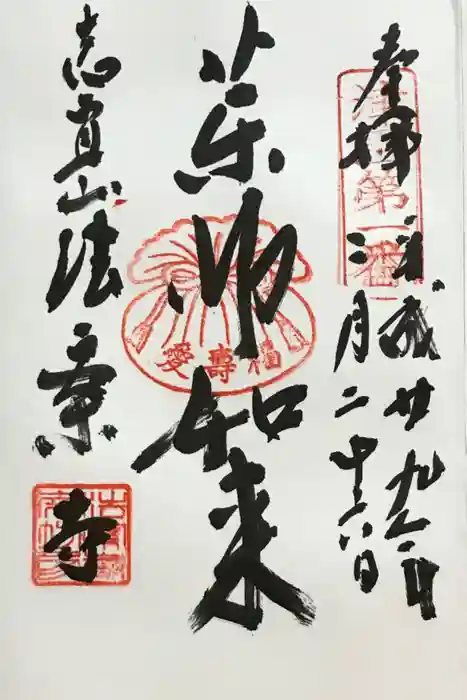 奉拝 平成廿九年
月二十六日
第一番
薬师如来
福壽愛
志宜山法案寺